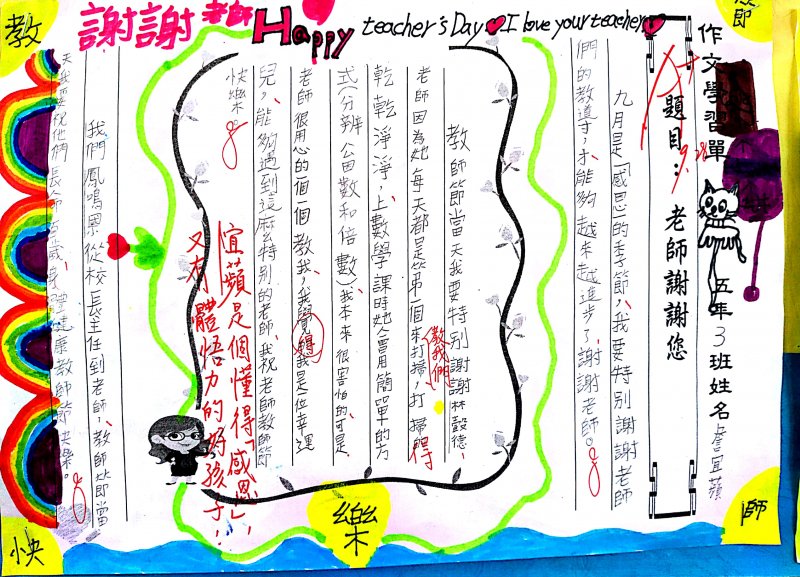 謝謝老師 Happy teacher's Day I love your teacher
教
節
師
快
樂
作文學習單
五年3班姓名:詹宜蘋
題目:老師謝謝您
九月是「感恩」的季節,我要特別謝謝老師
們的教導,才能夠越來越進步了,謝謝老師。
教師節當天我要特別謝謝林毅德
老師因為她每天都是第一個來教我們打掃,打掃得
乾乾淨淨,上數學課時她會用簡單的方
式(分辨公因數和倍數)我本來很害怕的,可是
老師很用心的一個一個教我,我覺得我是一位幸運
兒,能夠遇到這麼特別的老師,我祝老師教師節
快樂。
宜蘋是個懂得「感恩」,
又有體悟力的好孩子!
我們鳳鳴恩從校長主任到老師,教師節當
天我要祝他們長命百歲,身體健康教師節快樂。